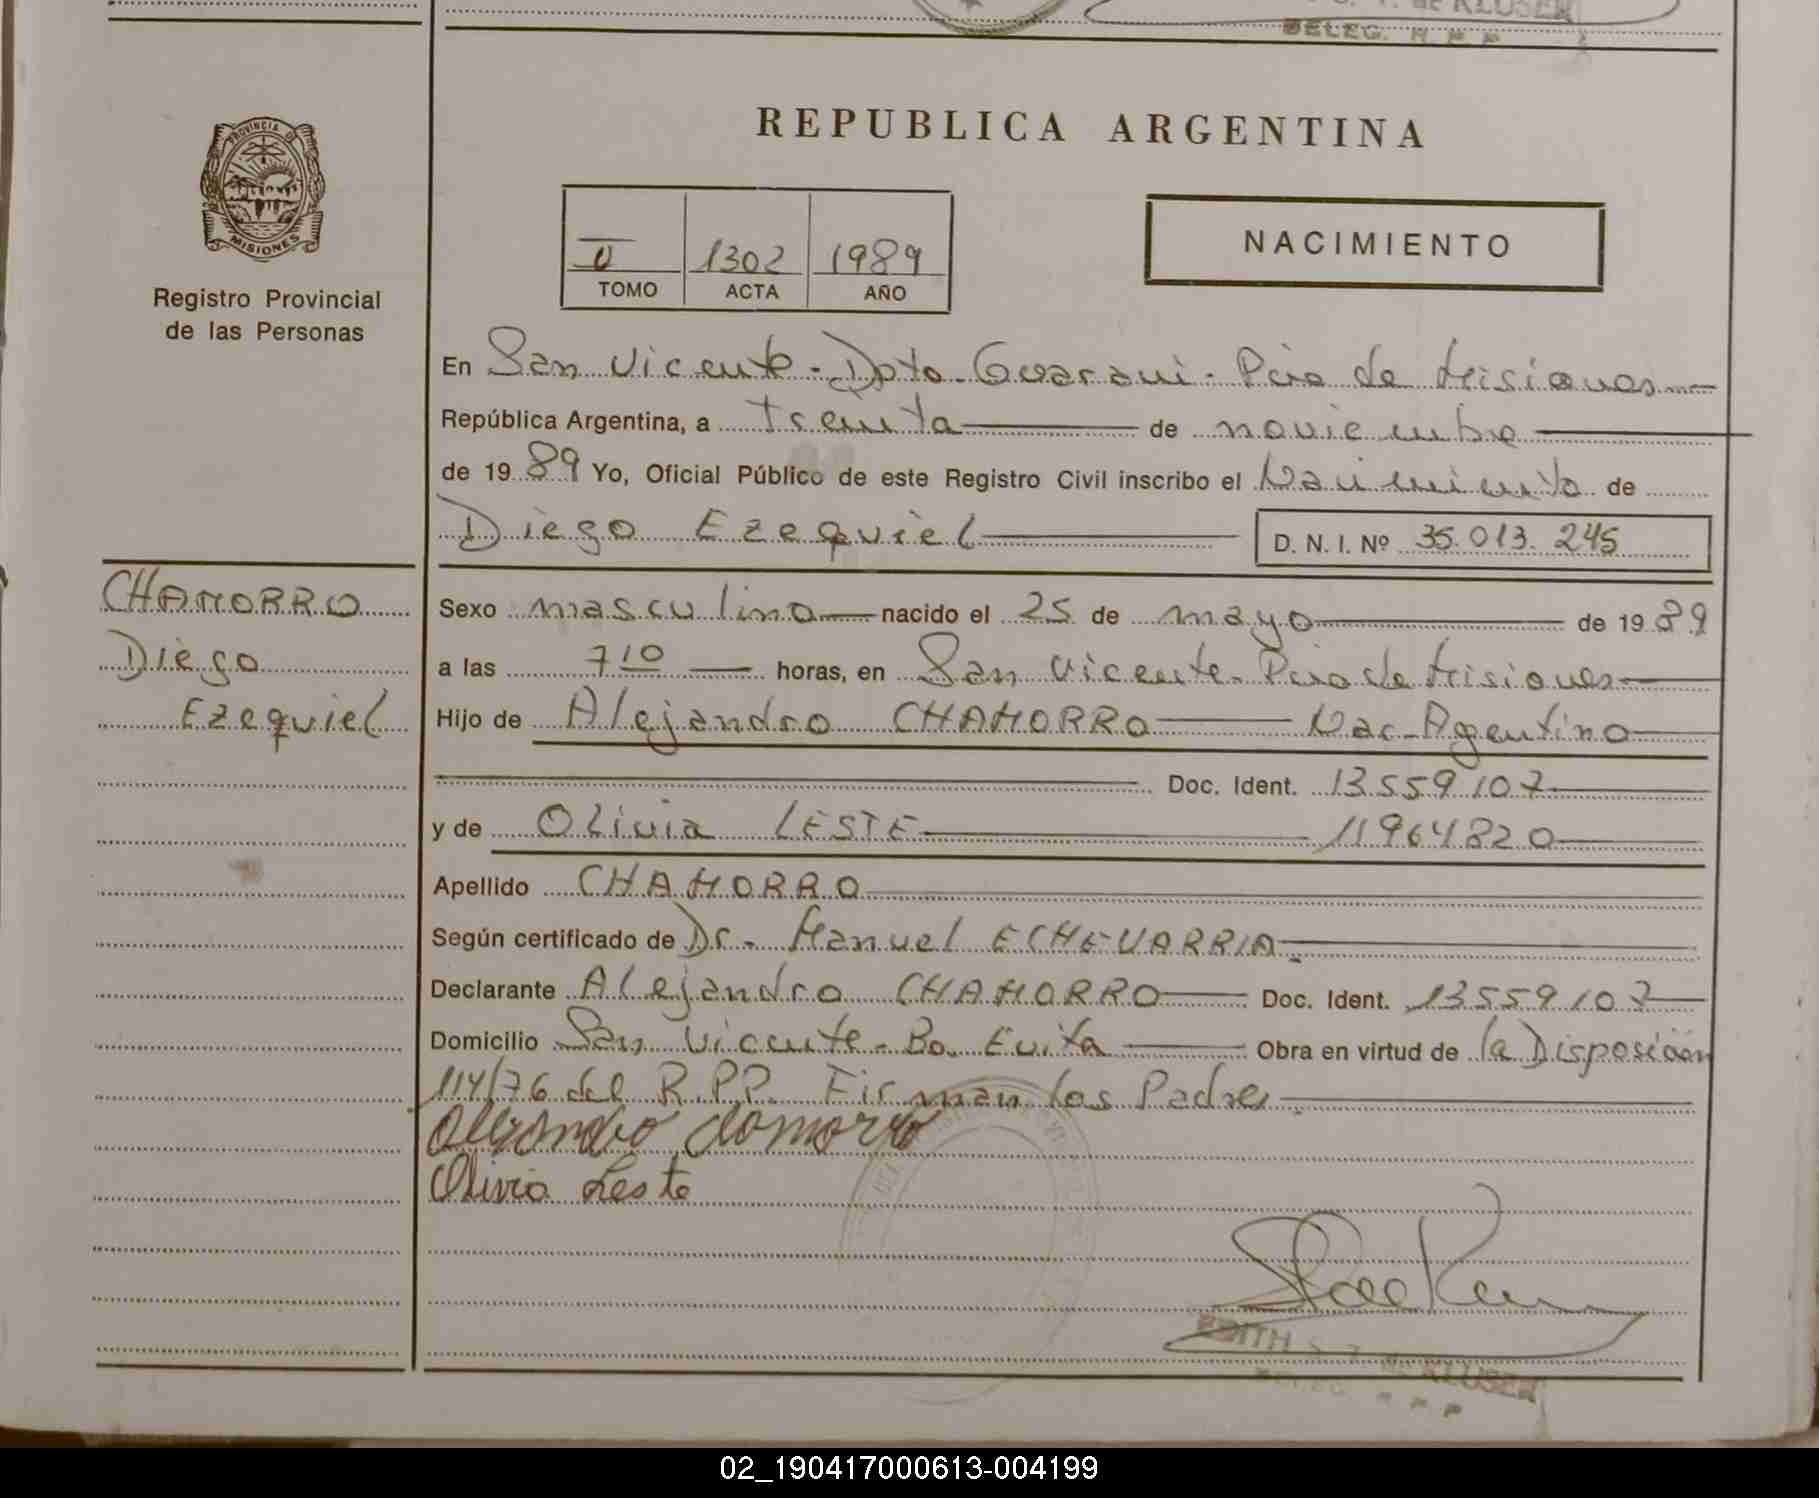 S. T. de KLUSER
DELEG. R P P
PROVINCIA DE
MISIONES
Registro Provincial
de las Personas
REPUBLICA ARGENTINA
V 1302 1989
TOMO ACTA AÑO
NACIMIENTO
En San Vicente - Dpto. Guarani - Pcia de Misiones
República Argentina, a treinta de noviembre
de 1989 Yo, Oficial Público de este Registro Civil inscribo el Nacimiento de
Diego Ezequiel
D. N. I. Nº 35.013.245
CHAMORRO
Diego
Ezequiel
Sexo masculino nacido el 25 de mayo de 1989
a las 7 10 horas, en San Vicente - Pcia de Misiones
Hijo de Alejandro CHAMORRO Nac. Agentino
Doc. Ident. 13559107
y de Olivia LESTE 11964820
Apellido CHAMORRO
Según certificado de Dr. Manuel ECHEVARRIA
Declarante Alejandro CHAMORRO Doc. Ident. 13559107
Domicilio San Vicente - Bo. Evita Obra en virtud de la Disposición
114/76 del R.P.P. Firman los Padres
Olivia Leste
EDITH S. T. de KLUSER
DELEG. R P P
02_190417000613-004199